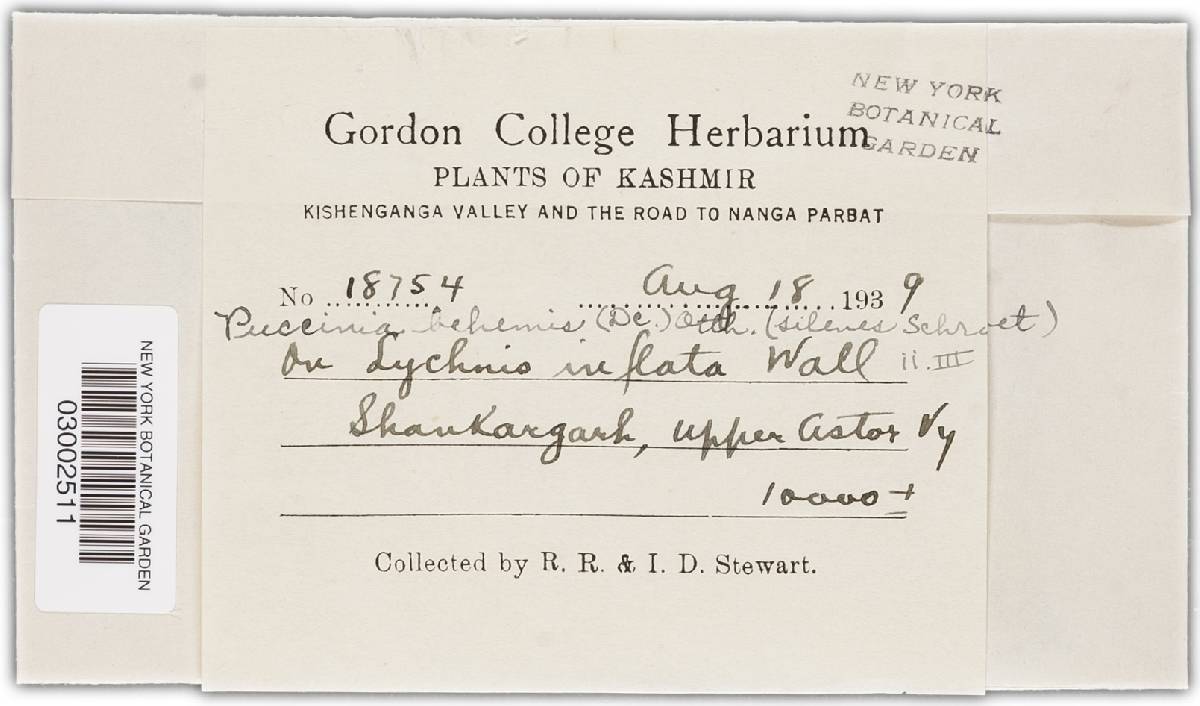 NEW YORK
BOTANICAL
GARDEN
Gordon College Herbarium
PLANTS OF KASHMIR
KISHENGANGA VALLEY AND THE ROAD TO NANGA PARBAT
No 18754 Aug 18 1939
Puccinia behenis (DC.) Otth. (silenes Schroet)
On Lychnis inflata Wall ii. III
Shankargarh, upper Astor Vy
10000 ±
Collected by R. R. & I. D. Stewart.
NEW YORK BOTANICAL GARDEN
03002511